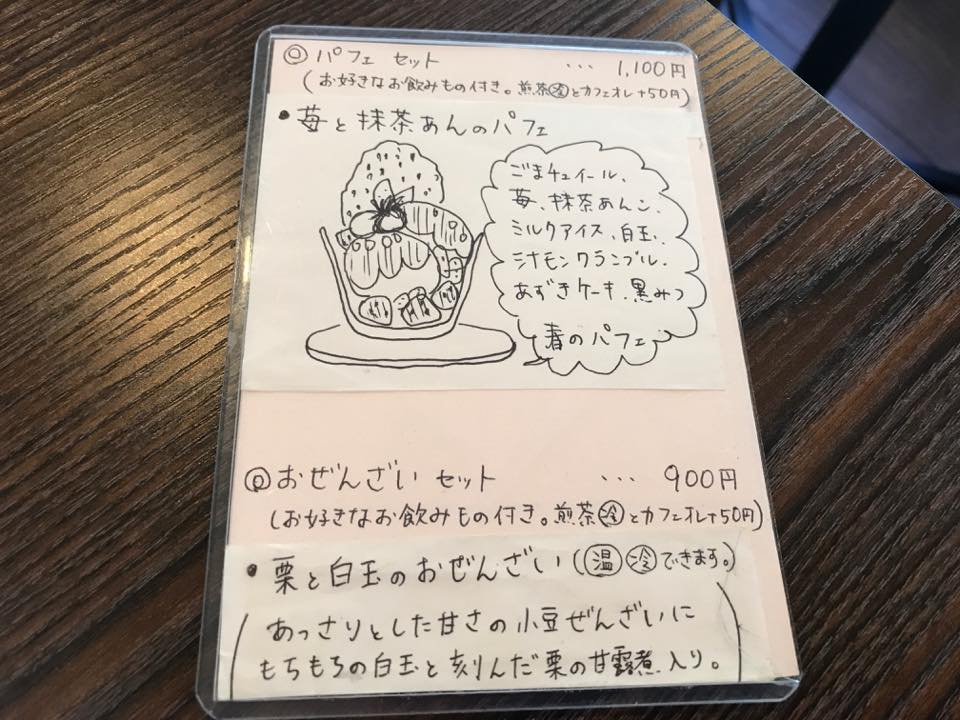 ◎パフェ セット ... 1,100円
(お好きなお飲みもの付き。煎茶冷とカフェオレ+50円)
・苺と抹茶あんのパフェ
ごまチュイール、
苺、抹茶あんこ、
ミルクアイス、白玉、
シナモンクランブル、
あずきケーキ、黒みつ
春のパフェ
◎おぜんざい セット ... 900円
(お好きなお飲みもの付き。煎茶冷とカフェオレ+50円)
・栗と白玉のおぜんざい(温冷できます。)
(あっさりとした甘さの小豆ぜんざいに
もちもちの白玉と刻んだ栗の甘露煮入り。)